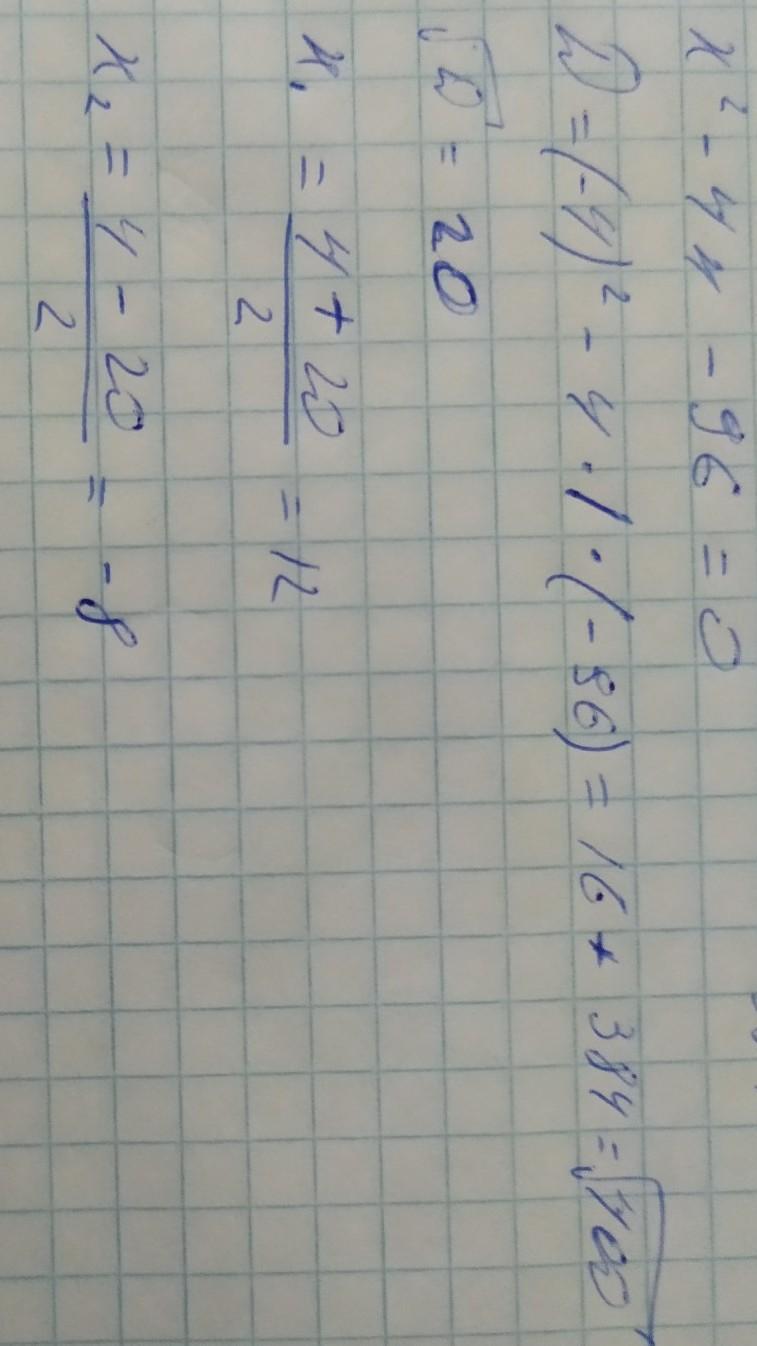 x² - 4x - 96 = 0
D = (-4)² - 4 · 1 · (-96) = 16 + 384 = √400
√D = 20
x₁ = (4 + 20) / 2 = 12
x₂ = (4 - 20) / 2 = -8